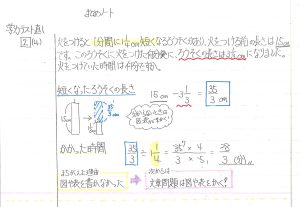 まとめノート
学力テスト直し
2(4)
火をつけると1分間に1 1/4 cm短くなるろうそくがあり、火をつける前の長さは15cm
です。このろうそくに火をつけた何分後に、ろうそくの長さは3 1/3 cmになりました。
火をつけていた時間は何分ですか。
短くなったろうそくの長さ
15cm - 3 1/3 = 35/3 cm
かかった時間
35/3 ÷ 1 1/4 = 35 × 4 / 3 × 5 = 28/3 (分)
まちがえた理由
図や表を書かなかった
次からは
文章問題は図や表をかく!